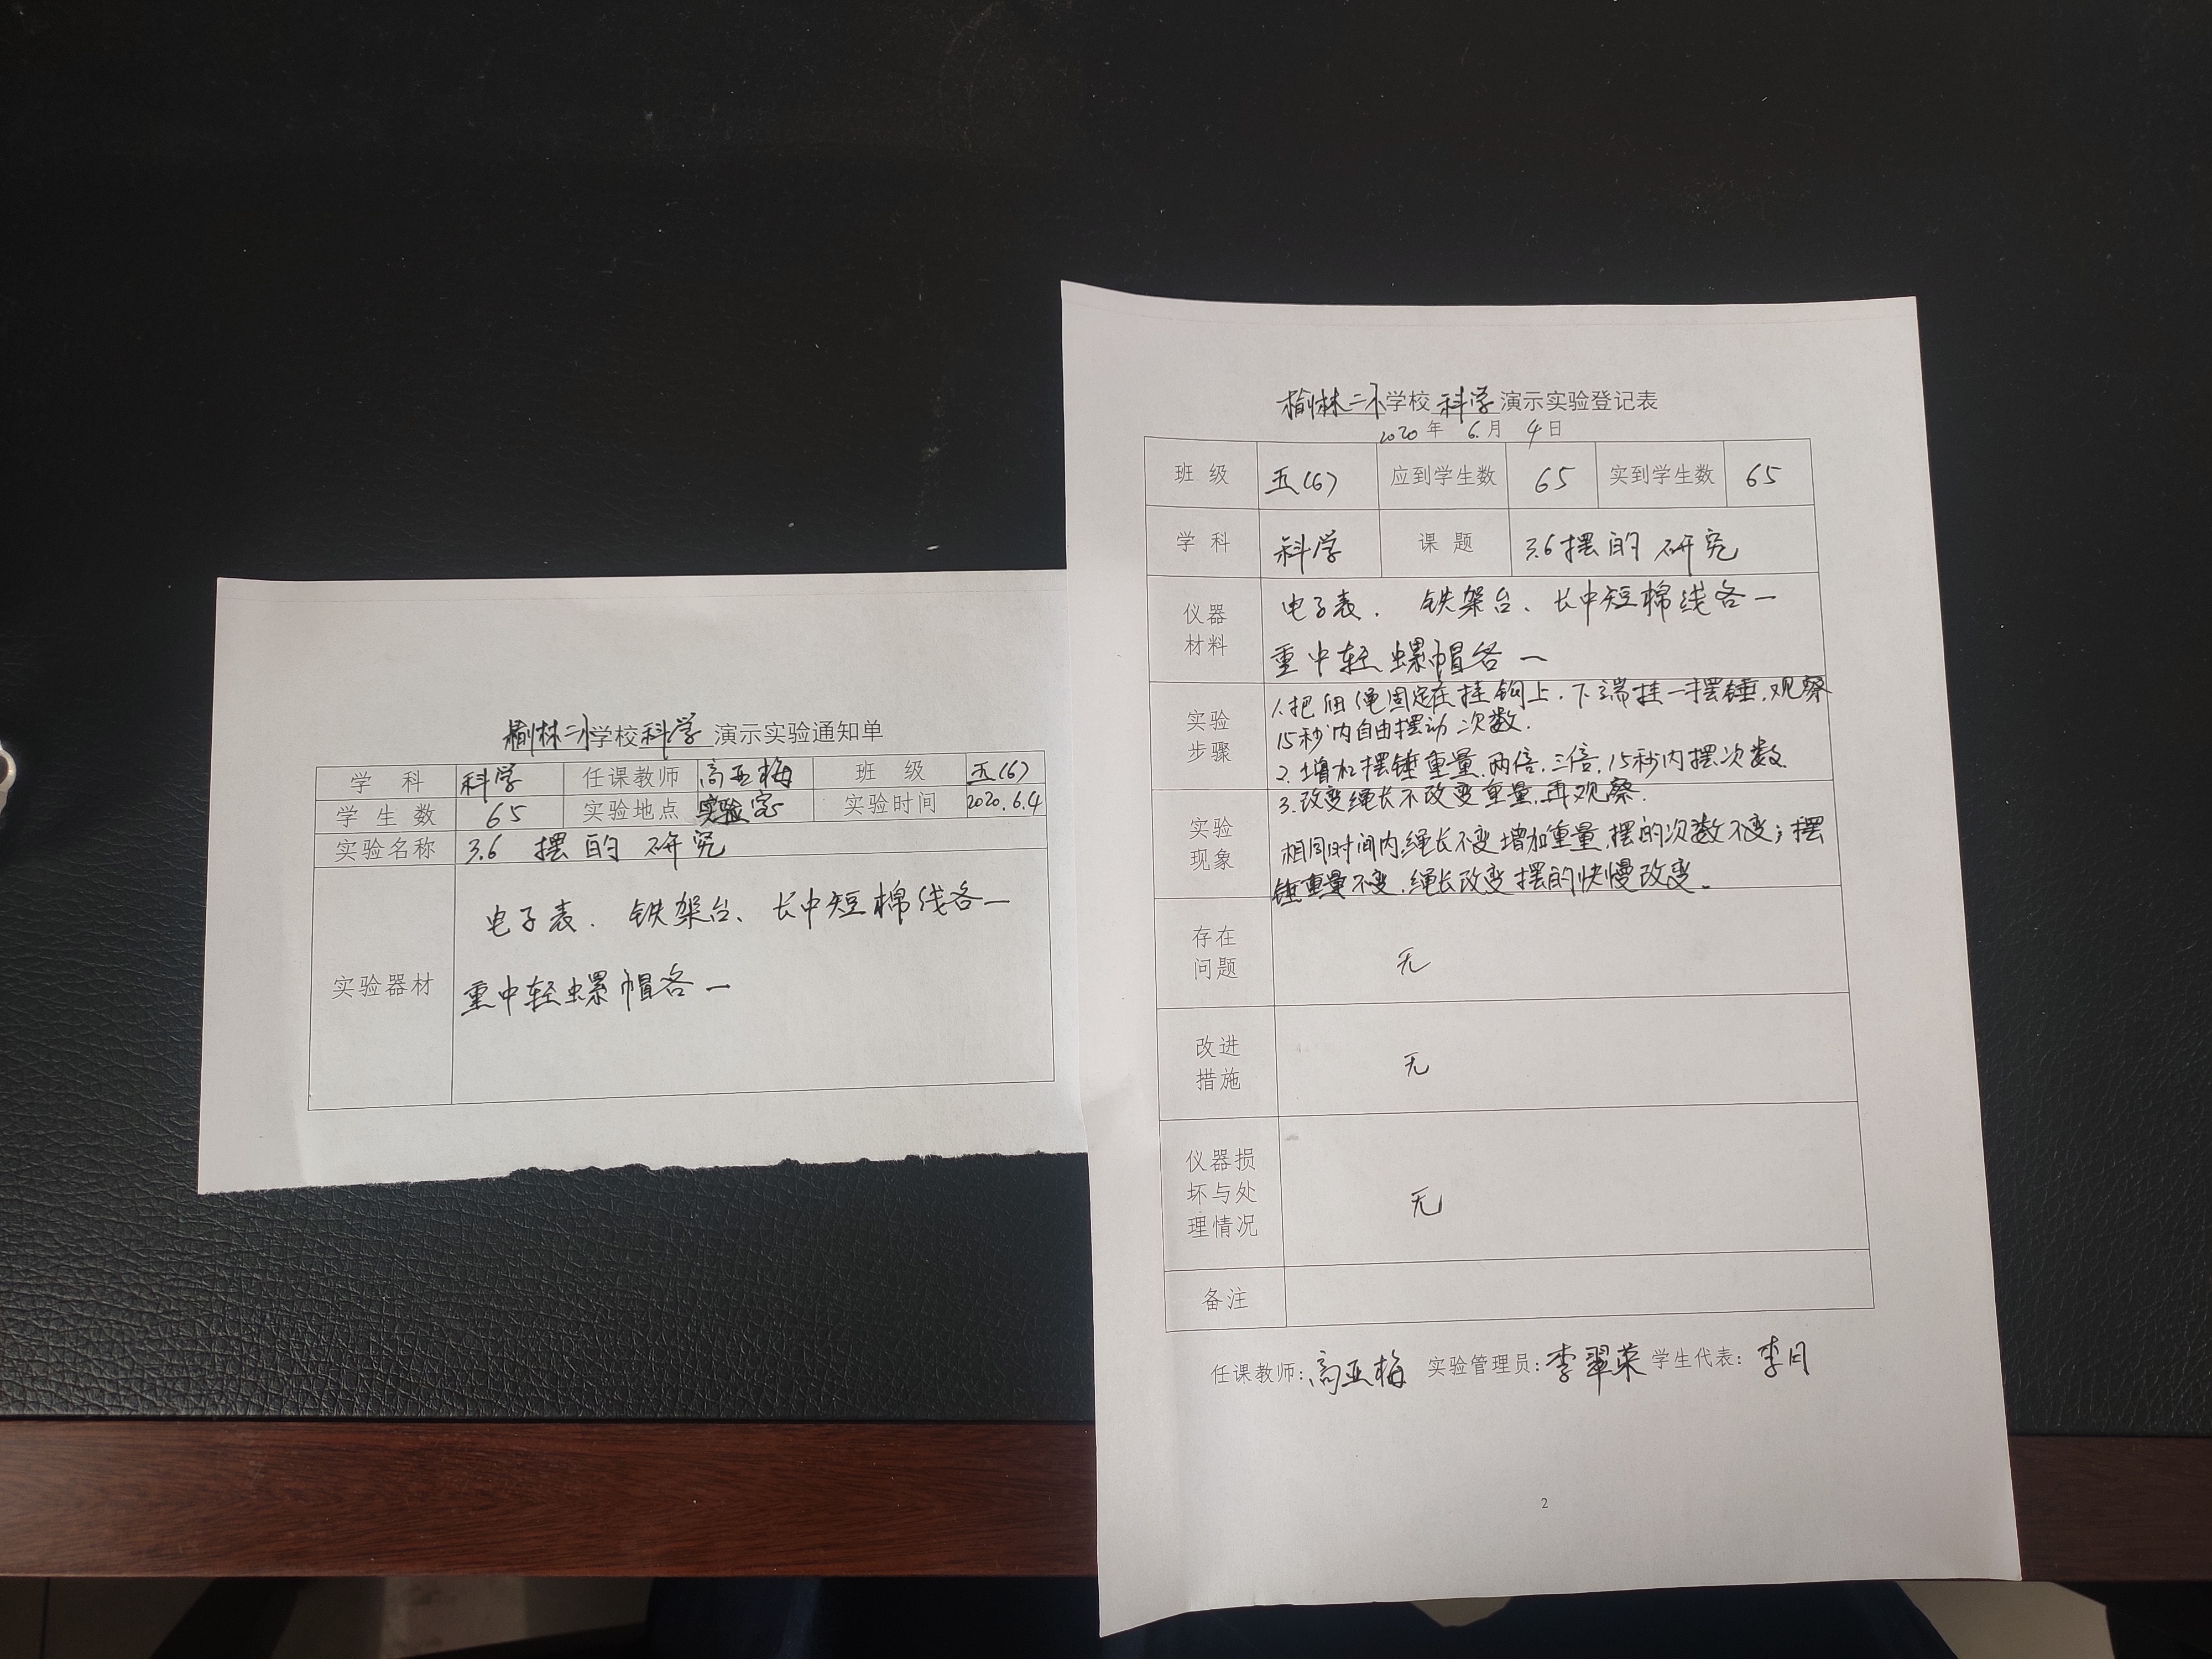 榆林二小学校科学演示实验通知单
学 科 科学 任课教师 高亚梅 班 级 五(6)
学 生 数 65 实验地点 实验室 实验时间 2020.6.4
实验名称 3.6 摆的研究
实验器材 电子表. 铁架台、长中短棉线各一
重中轻螺帽各一
榆林二小学校科学演示实验登记表
2020年 6月 4日
班 级 五(6) 应到学生数 65 实到学生数 65
学 科 科学 课 题 3.6摆的研究
仪器材料 电子表. 铁架台、长中短棉线各一
重中轻螺帽各一
实验步骤 1.把细绳固定在挂钩上.下端挂一摆锤,观察
15秒内自由摆动次数.
2.增加摆锤重量,两倍,三倍,15秒内摆次数.
3.改变绳长不改变重量,再观察.
实验现象 相同时间内,绳长不变增加重量,摆的次数不变;摆
锤重量不变,绳长改变摆的快慢改变。
存在问题 无
改进措施 无
仪器损坏与处理情况 无
备注
任课教师:高亚梅 实验管理员:李翠荣 学生代表:李月
2